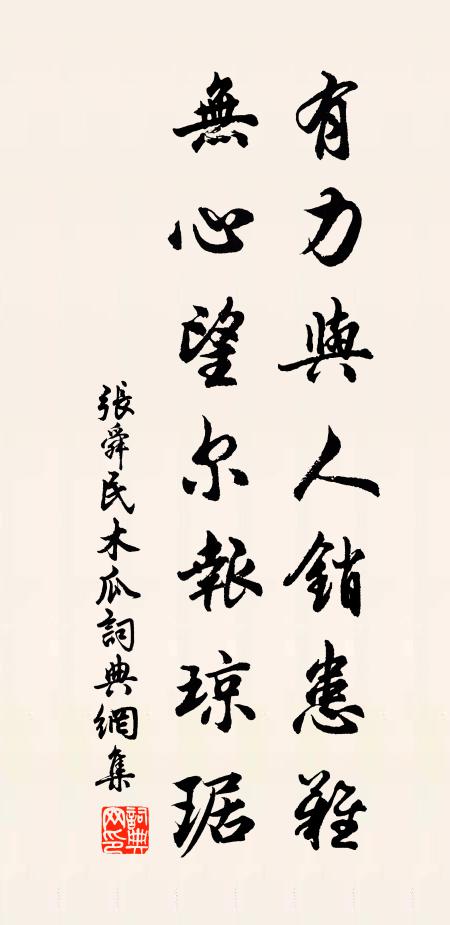 有力與人銷患難
無心望尔報琼琚
張舜民木瓜詞典網集
詞典網印